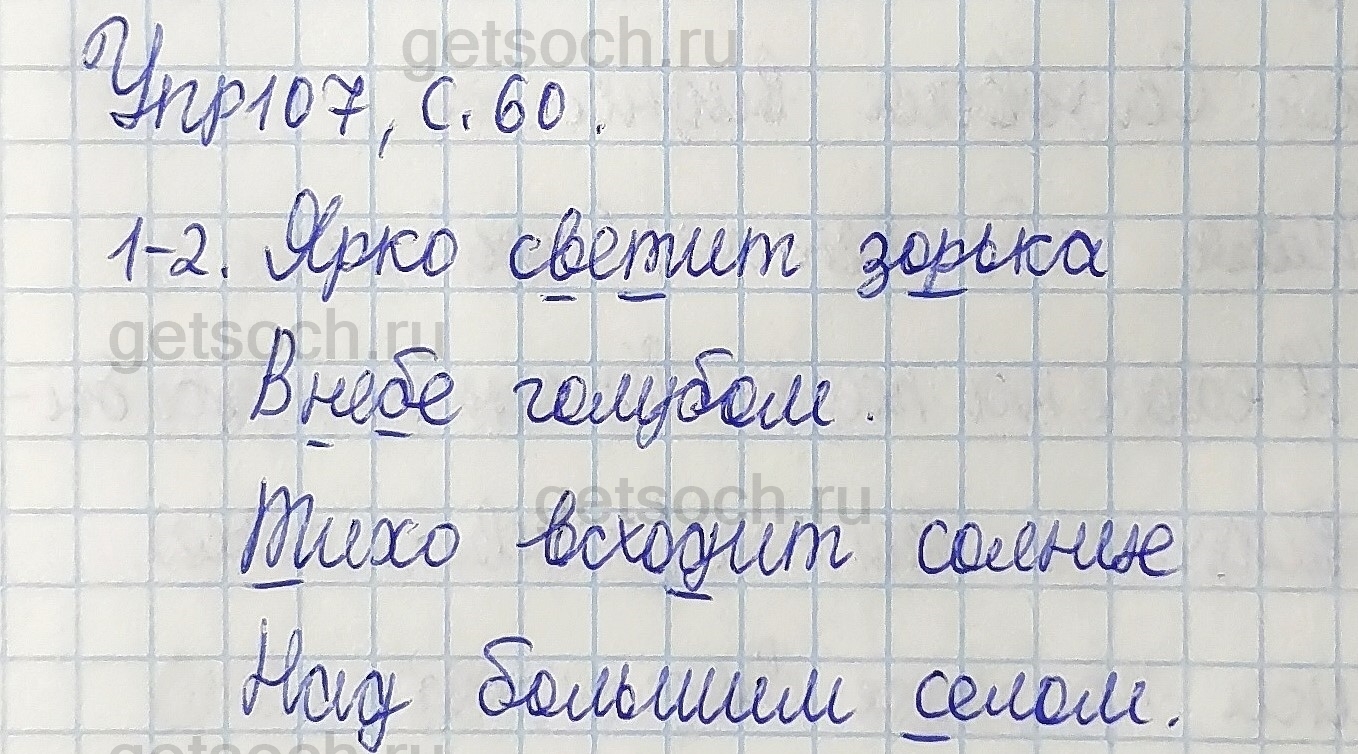 getsoch.ru
Упр107, с. 60.
1-2. Ярко светит зорька
getsoch.ru
В небе голубом.
getsoch.ru
Тихо всходит солнце
Над большим селом.
getsoch.ru